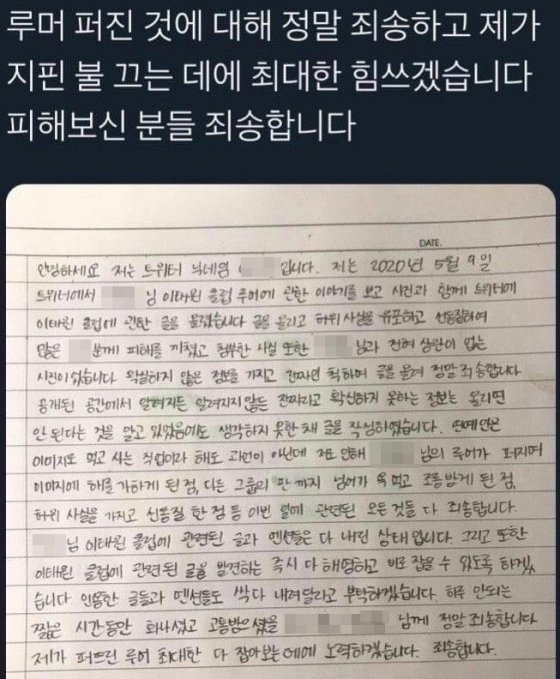 루머 퍼진 것에 대해 정말 죄송하고 제가
지핀 불 끄는 데에 최대한 힘쓰겠습니다
피해보신 분들 죄송합니다
DATE.
안녕하세요 저는 트위터 닉네임 입니다. 저는 2020년 5월 9일
트위터에서 님 이태원 클럽 루머에 관한 이야기를 보고 사진과 함께 트위터에
이태원 클럽에 관한 글을 올렸습니다 글을 올리고 허위 사실을 유포하고 선동질하여
많은 분께 피해를 끼쳤고 첨부한 사실 또한 님과 전혀 상관이 없는
사진이었습니다 확실하지 않은 정보를 가지고 진짜인 척하며 글을 올려 정말 죄송합니다
공개된 공간에서 알려지든 알려지지않든 진짜라고 확신하지 못하는 정보는 올리면
안 된다는 것을 알고 있었음에도 생각하지 못한채 글을 작성하였습니다. 연예인은
이미지로 먹고 사는 직업이라 해도 과언이 아닌데 저로 인해 님의 루머가 퍼지며
이미지에 해를 가하게 된 점, 다른 그룹의 팬 까지 넘어가 욕 먹고 조롱받게 된 점,
허위 사실을 가지고 선동질 한 점 등 이번 일에 관련된 모든것들 다 죄송합니다.
님 이태원 클럽에 관련된 글과 멘션들은 다 내린 상태입니다. 그리고 또한
이태원 클럽에 관련된 글을 발견하는 즉시 다 해명하고 바로 잡을 수 있도록 하겠
습니다 인용한 글들과 멘션들도 싹다 내려달라고 부탁하겠습니다. 하루 안되는
짧은 시간동안 화나셨고 고통받으셨을 님께 정말 죄송합니다
제가 퍼뜨린 루머 최대한 다 잡아보는데에 노력하겠습니다. 죄송합니다.